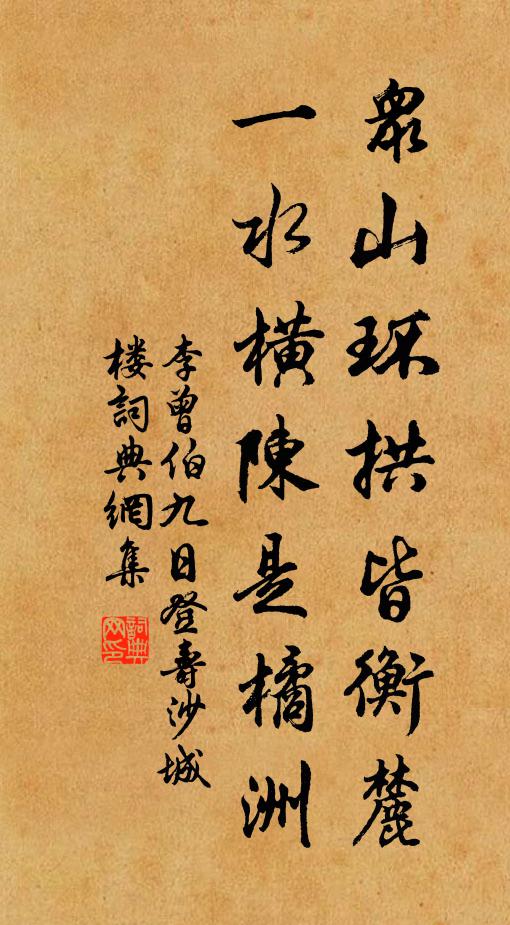 眾山环拱皆衡麓
一水橫陳是橘洲
李曾伯九日登壽沙城
楼詞典網集
詞典网印